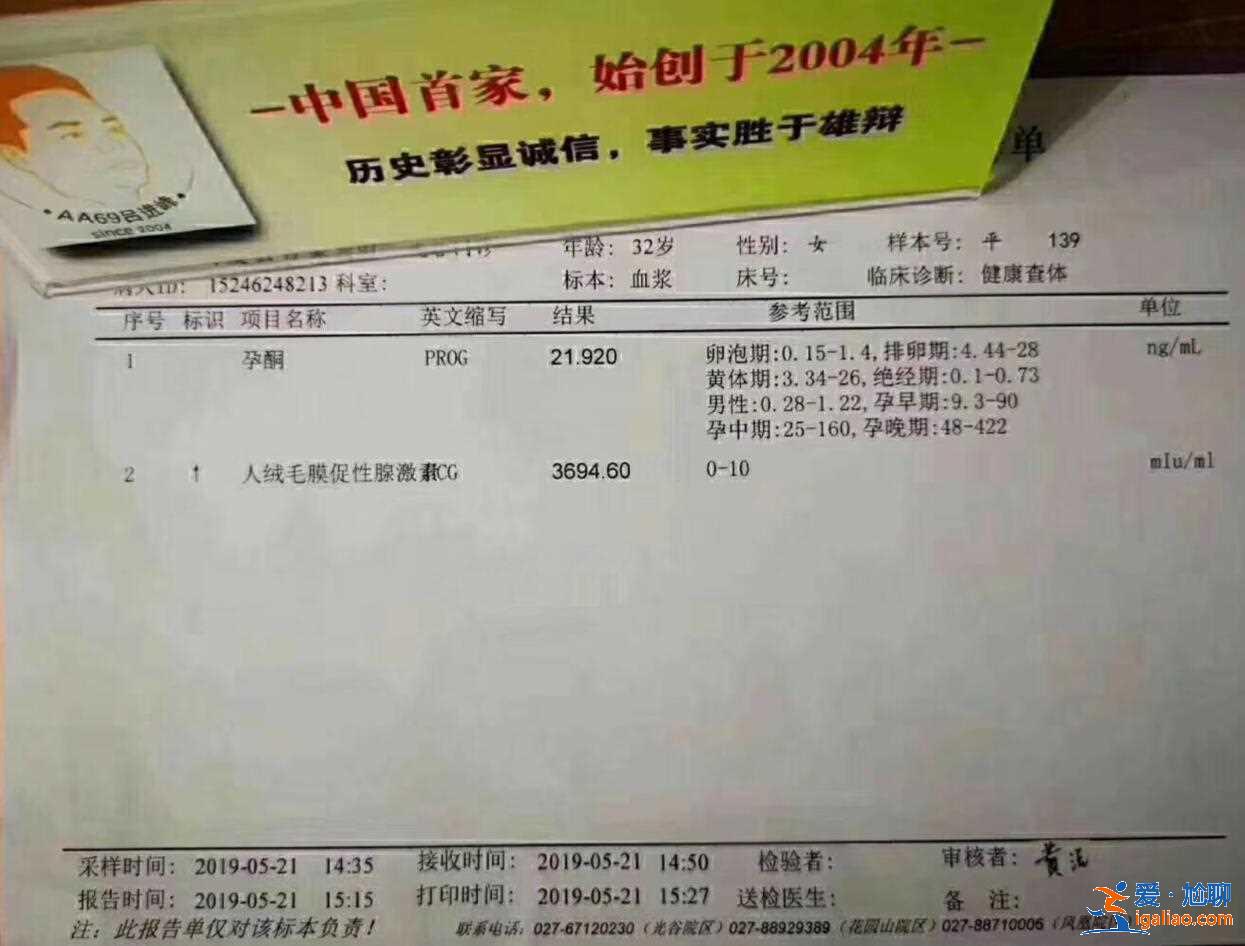 －中国首家，始创于2004年－
历史彰显诚信，事实胜于雄辩
AA69吕进峰
since 2004
单
年龄： 32岁 性别： 女 样本号： 平 139
15246248213 科室： 标本： 血浆 床号： 临床诊断： 健康查体
序号 标识 项目名称 英文缩写 结果 参考范围 单位
1 孕酮 PROG 21.920 卵泡期:0.15-1.4,排卵期:4.44-28 ng/mL
黄体期:3.34-26,绝经期:0.1-0.73
男性:0.28-1.22,孕早期:9.3-90
孕中期:25-160,孕晚期:48-422
2 ↑ 人绒毛膜促性腺激素 CG 3694.60 0-10 mIu/ml
采样时间： 2019-05-21 14:35 接收时间： 2019-05-21 14:50 检验者： 审核者：
报告时间： 2019-05-21 15:15 打印时间： 2019-05-21 15:27 送检医生： 备 注：
注：此报告单仅对该标本负责！ 联系电话：027-67120230（光谷院区）027-88929389（花园山院区）027-88710006（凤凰院区
爱·尬聊
igaliao.com